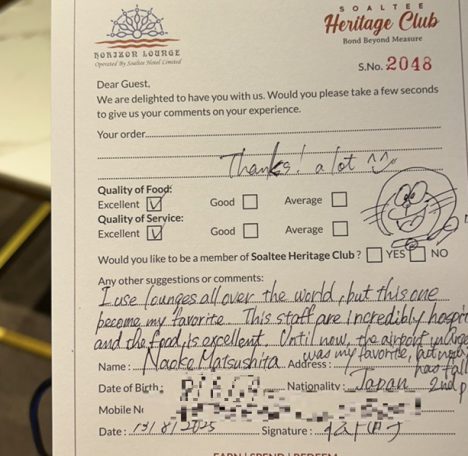 HORIZON LOUNGE
Operated By Soaltee Hotel Limited
SOALTEE
Heritage Club
Bond Beyond Measure
S.No. 2048
Dear Guest,
We are delighted to have you with us. Would you please take a few seconds
to give us your comments on your experience.
Your order
Thanks! a lot ^^
Quality of Food:
Excellent Good Average
Quality of Service:
Excellent Good Average
Would you like to be a member of Soaltee Heritage Club? YES NO
Any other suggestions or comments:
I use lounges all over the world, but this one
become my favorite. This staff are incredibly hospit
and the food is excellent. Until now, the airport
was my favorite, but now
has fall
2nd p
Name: Naoko Matsushita Address:
Date of Birth: Nationality: Japan
Mobile N
Date: 13/8/2025 Signature:
EARN | SPEND | REDEEM